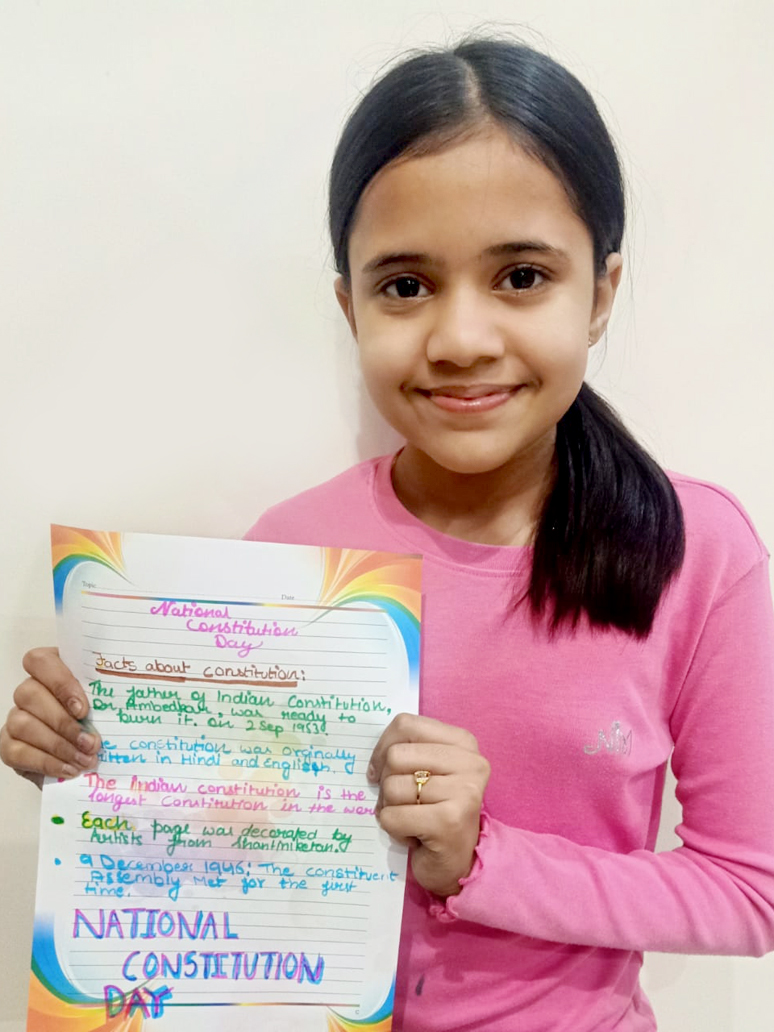 Topic
Date
National
Constitution
Day
Facts about constitution:
The father of Indian Constitution,
Dr. Ambedkar, was ready to
burn it. on 2 Sep 1953.
constitution was orginally
written in Hindi and English.
The Indian constitution is the
longest Constitution in the
Each page was decorated by
Artists from Shantiniketan.
9 December 1946: The constituent
Assembly Met for the first
time.
NATIONAL
CONSTITUTION
DAY